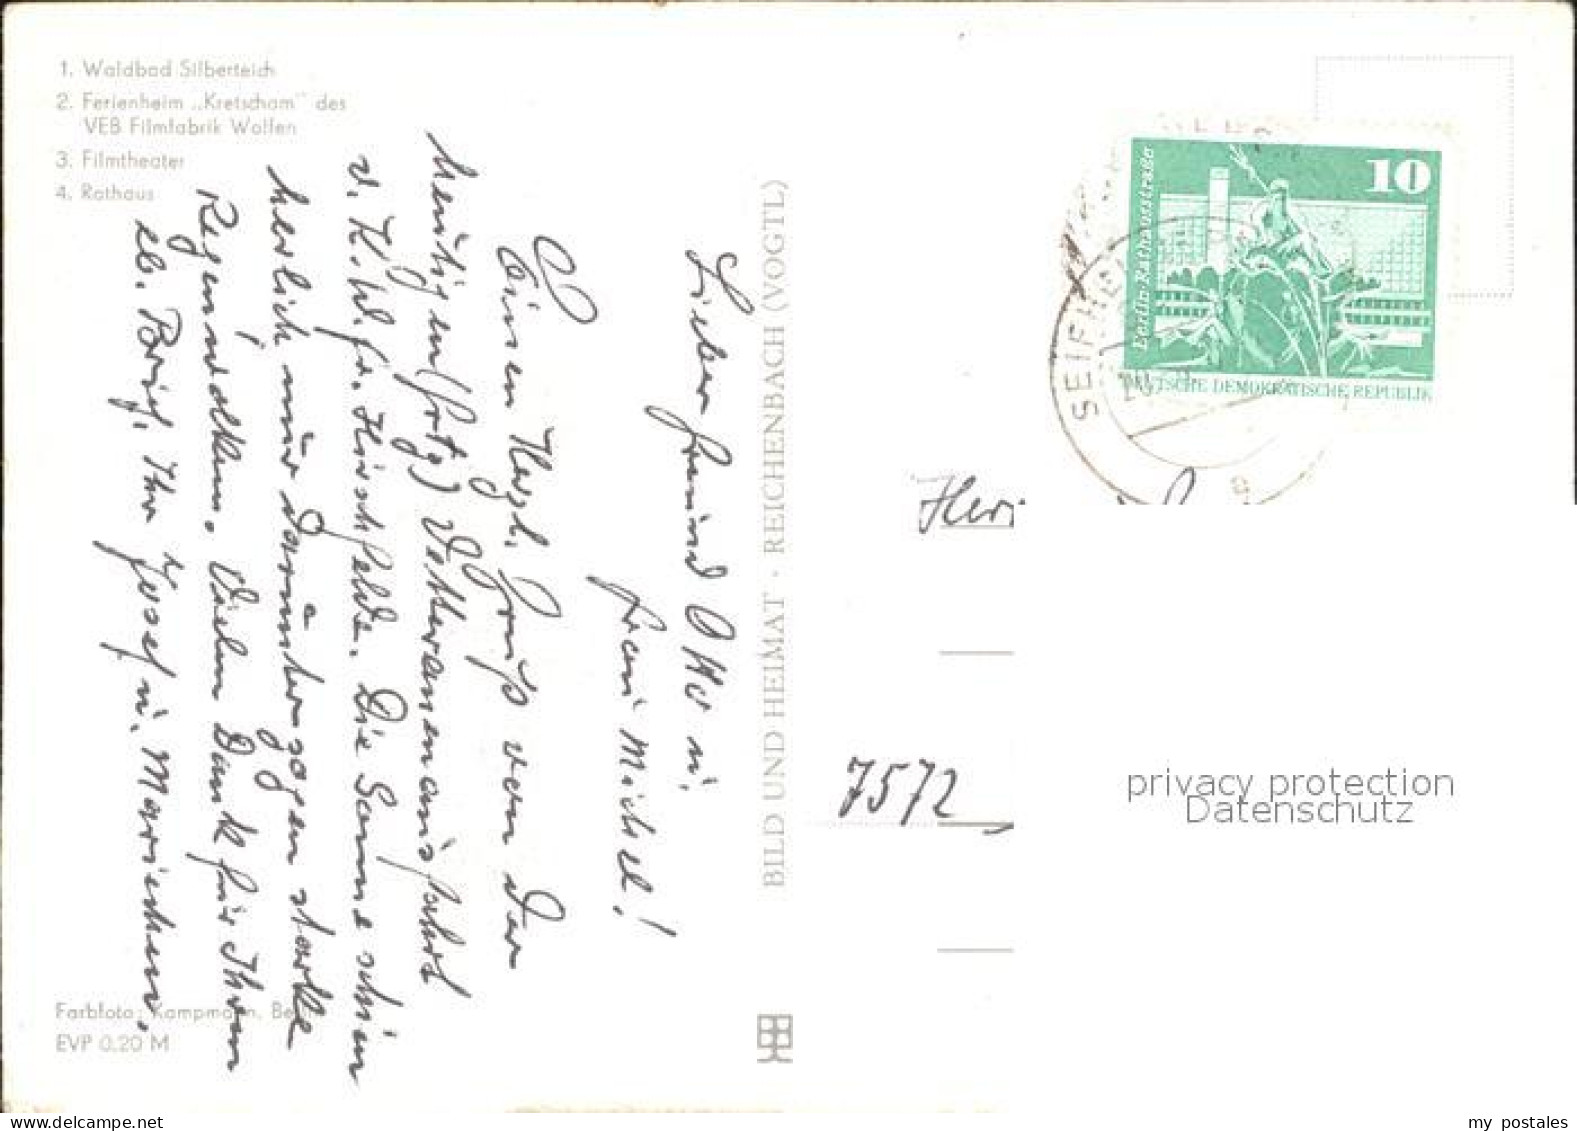 1. Waldbad Silberteich
2. Ferienheim „Kretscham" des
VEB Filmfabrik Wolfen
3. Filmtheater
4. Rathaus
Lieber Freund Otto u.
Frau Michel!
Einen Herzl. Gruß von der
heutigen
v. K. W. Hirschfelde. Die Sonne schien
herlich nur Darunter zogen starke
Regenwolken. Vielen Dank für Ihren
lb. Brief, Ihr Josef u. Mariechen.
Farbfoto: Kampmann, Berlin
EVP 0,20 M
BILD UND HEIMAT · REICHENBACH (VOGTL)
Berlin-Rathausstraße
10
DEUTSCHE DEMOKRATISCHE REPUBLIK
SEIFHEN
7572
privacy protection
Datenschutz
my postales